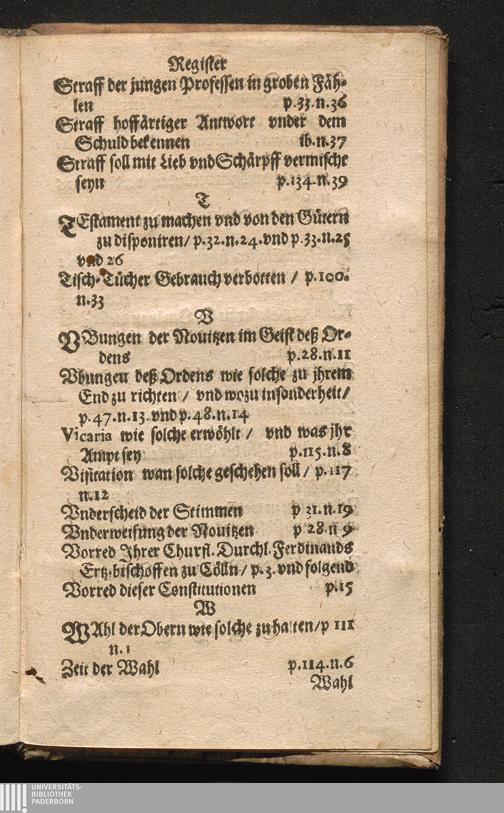 Register
Straff der jungen Professen in groben Fäh-
len p.33.n.36
Straff hoffärtiger Antwort vnder dem
Schuld bekennen ib.n.37
Straff soll mit Lieb vnd Schärpff vermischt
seyn p.134.n.39
T
TEstament zu machen vnd von den Gütern
zu disponiren/ p.32.n.24.vnd p.33.n.25
vnd 26
Tisch-Tücher Gebrauch verbotten / p.100.
n.33
V
VBungen der Novitzen im Geist deß Or-
dens p.28.n.11
Vbungen deß Ordens wie solche zu jhrem
End zu richten / vnd wozu insonderheit/
p.47.n.13.vnd p.48.n.14
Vicaria wie solche erwöhlt / vnd was jhr
Ampt sey p.115.n.8
Visitation wan solche geschehen soll / p.117
n.12
Vnderscheid der Stimmen p 21.n.19
Vnderweisung der Novitzen p 28.n 9
Vorred Ihrer Churfl. Durchl. Ferdinands
Ertz-bischoffen zu Cölln/ p.3.vnd folgend
Vorred dieser Constitutionen p.15
W
WAhl der Obern wie solche zu halten/p 111
n.1
Zeit der Wahl p.114.n.6
Wahl
UNIVERSITÄTS-
BIBLIOTHEK
PADERBORN